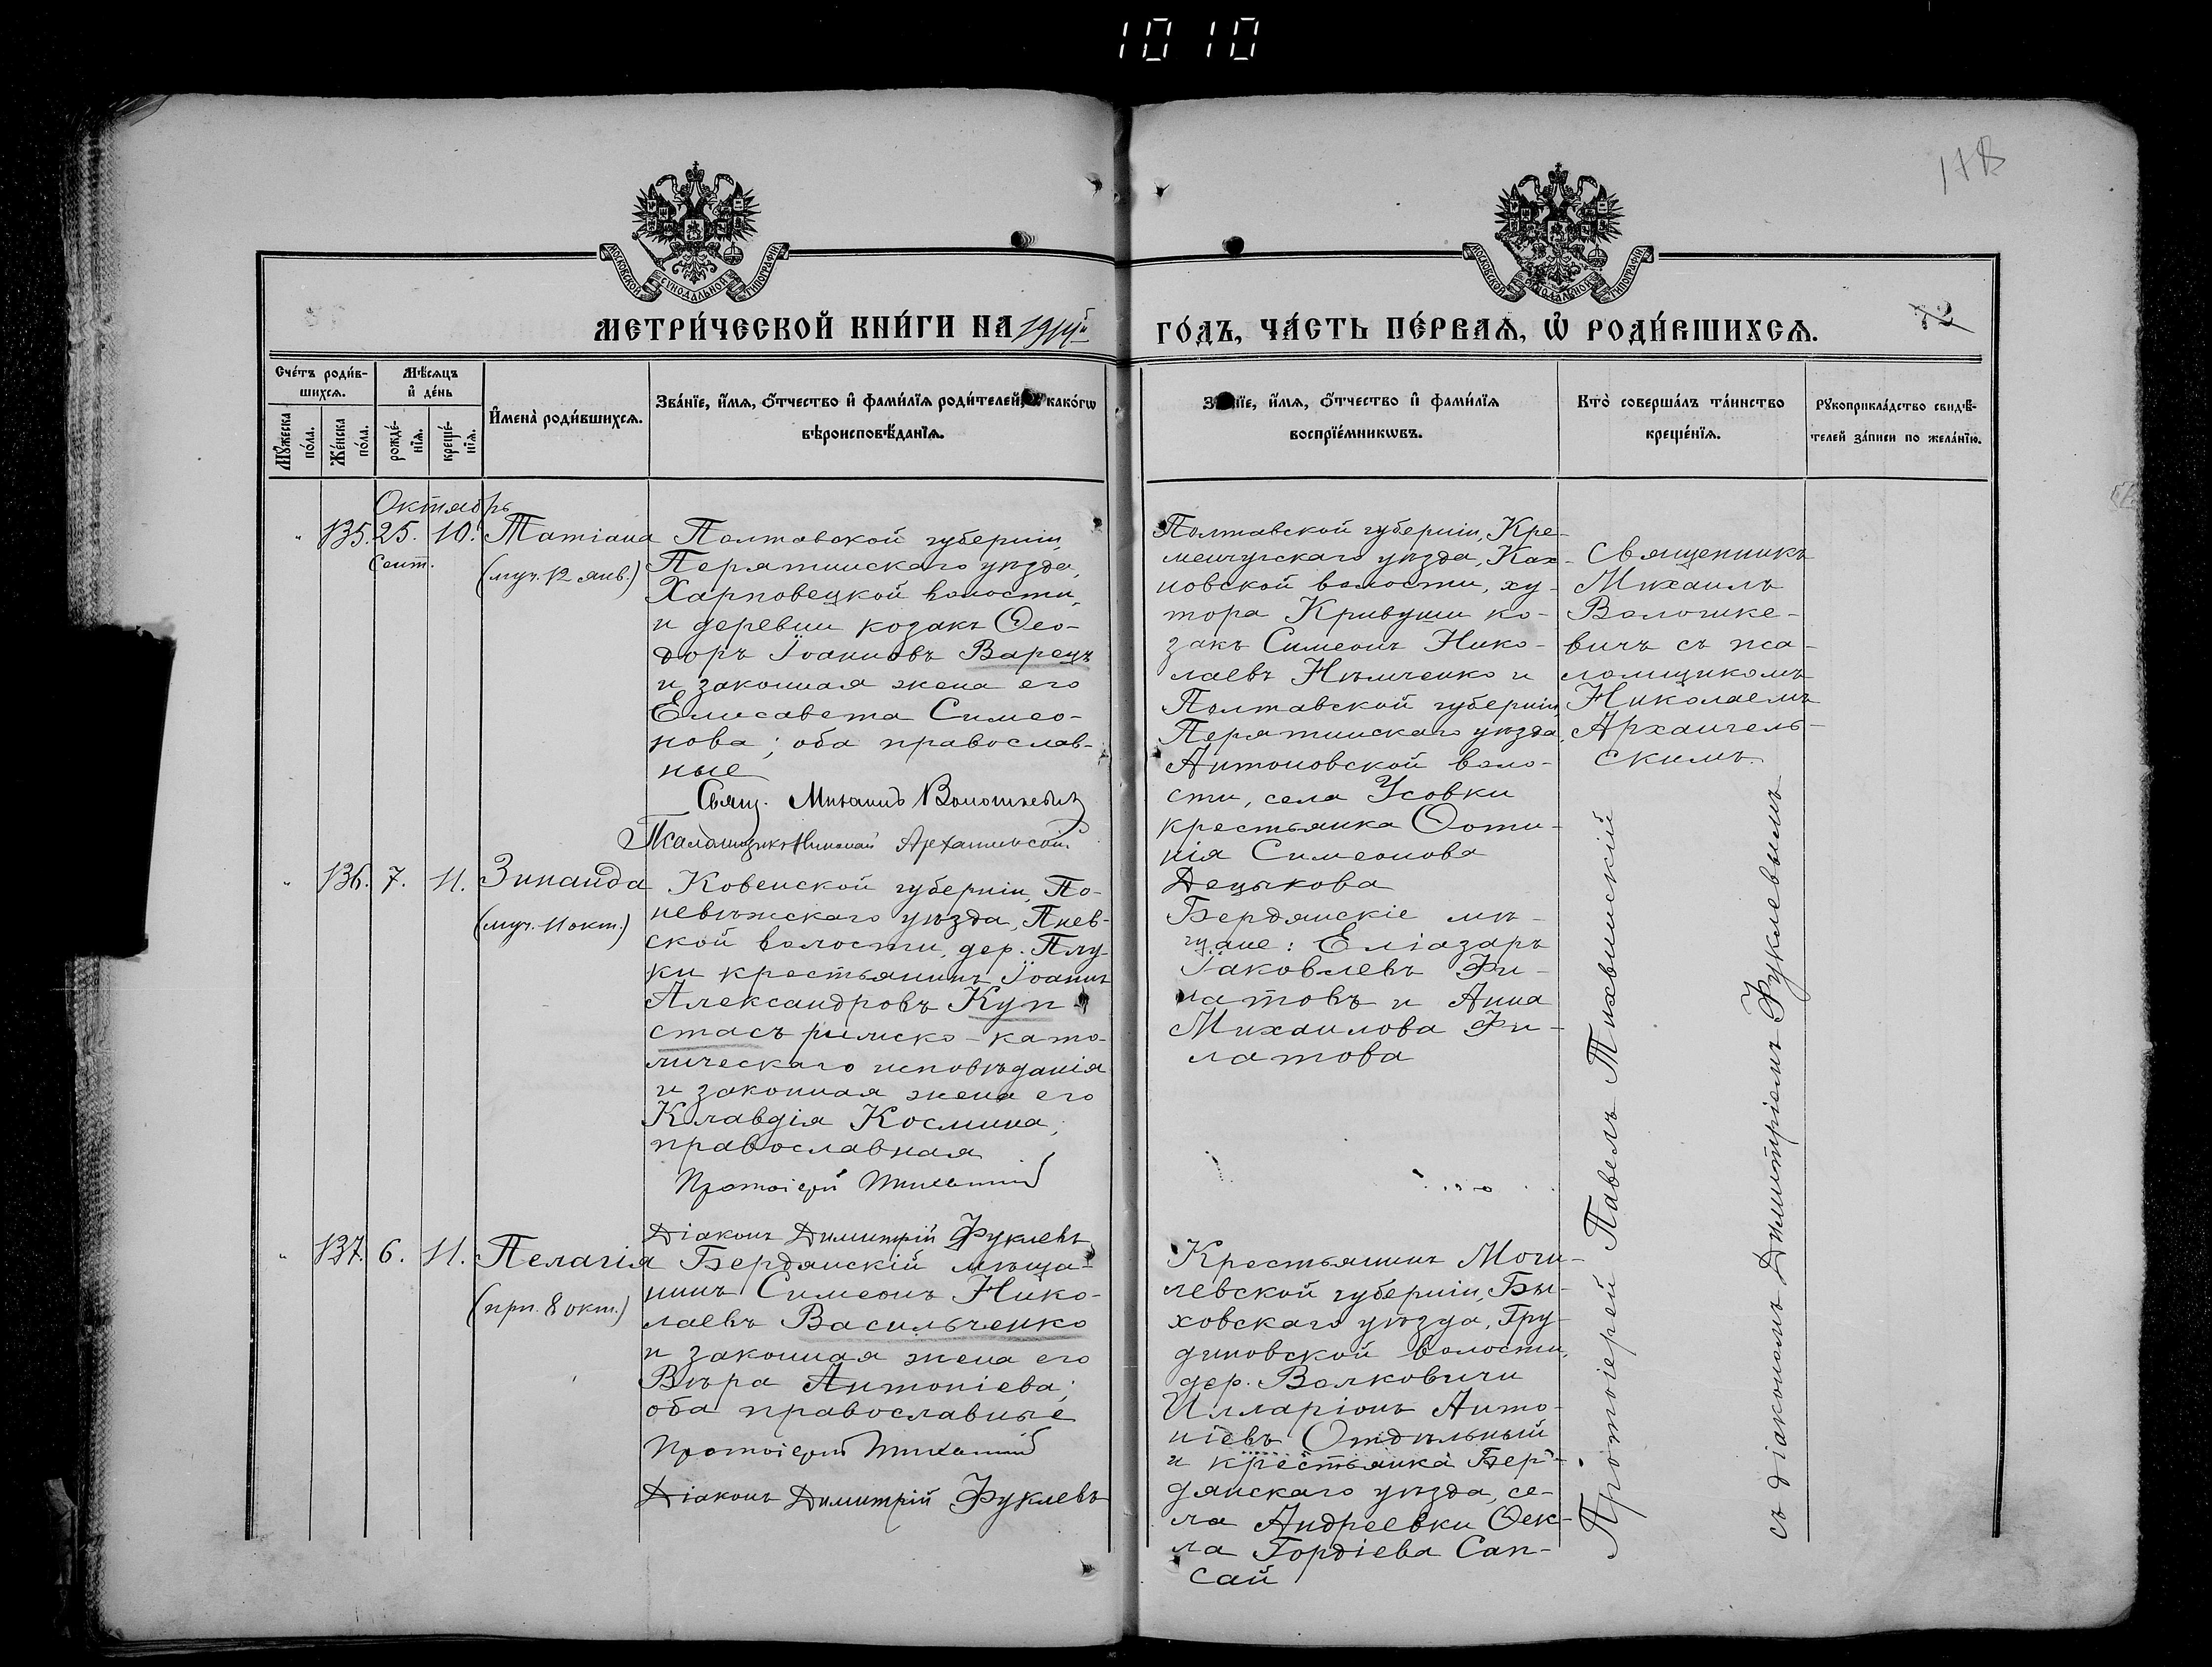 1010
178
МОСКОВСКОЙ СУНОДАЛЬНОЙ ТИПОГРАФІИ
МОСКОВСКОЙ СУНОДАЛЬНОЙ ТИПОГРАФІИ
МЕТРИ́ЧЕСКОЙ КНИ́ГИ НА 1914й
ГО́ДЪ, ЧА́СТЬ ПЕ́РВАѦ, Ѡ҆ РОДИ́ВШИХСѦ.
72
Сче́тъ роди́в-
шихсѧ.
Мꙋжеска
по́ла.
Же́нска
по́ла.
Мѣ́сѧцъ
и҆ де́нь
рожде́-
нїѧ.
креще́-
нїѧ.
И҆мена̀ роди́вшихсѧ.
Зва́нїе, и҆́мѧ, ѻ҆́тчество и҆ фами́лїѧ роди́телей, и҆ како́гѡ
вѣроисповѣ́данїѧ.
Зва́нїе, и҆́мѧ, ѻ҆́тчество и҆ фами́лїѧ
воспрїе́мникѡвъ.
Кто̀ соверша́лъ та́инство
креще́нїѧ.
Рꙋкоприкла́дство свидѣ́-
телей за́писи по жела́нїю.
Октябрь
135. 25. 10. Татіана
Сент.
(муч. 12 янв.)
Полтавской губерніи,
Пирятинскаго уѣзда,
Харповецкой волости,
и деревни козакъ Ѳео-
доръ Іоанновъ Варецъ
и законная жена его
Елисавета Симео-
нова; оба православ-
ные
Свящ. Михаилъ Волошкевичъ
Псаломщикъ Николай Архангельскій
Полтавской губерніи, Кре-
менчугскаго уѣзда, Ках-
новской волости, ху-
тора Кривуши ко-
закъ Симеонъ Нико-
лаевъ Нѣмченко и
Полтавской губерніи,
Пирятинскаго уѣзда,
Антоновской воло-
сти, села Усовки
крестьянка Ѳоти-
нія Симеонова
Децыкова
Священникъ
Михаилъ
Волошке-
вичъ съ пса-
ломщикомъ
Николаемъ
Архангель-
скимъ.
136. 7. 11. Зинаида
(муч. 11 окт.)
Ковенской губерніи, По-
невѣжскаго уѣзда, Пнев-
ской волости, дер. Плу-
ки крестьянинъ Іоаннъ
Александровъ Куп-
стасъ римско-като-
лическаго исповѣданія
и законная жена его
Клавдія Космина,
православная
Протоіерей Тихвинскій
Діаконъ Димитрій Фуклевъ
Бердянскіе мѣ-
щане: Еліазаръ
Іаковлевъ Фи-
латовъ и Анна
Михаилова Фи-
латова
137. 6. 11. Пелагія
(прп. 8 окт.)
Бердянскій мѣща-
нинъ Симеонъ Нико-
лаевъ Васильченко
и законная жена его
Вѣра Антоніева;
оба православные
Протоіерей Тихвинскій
Діаконъ Димитрій Фуклевъ
Крестьянинъ Моги-
левской губерніи, Бы-
ховскаго уѣзда, Гру-
диновской волости,
дер. Волковичи
Илларіонъ Анто-
ніевъ Отдѣльный
и крестьянка Бер-
дянскаго уѣзда, се-
ла Андреевки Ѳек-
ла Гордіева Сап-
сай
Протоіерей Павелъ Тихвинскій
съ діакономъ Димитріемъ Фуклевымъ